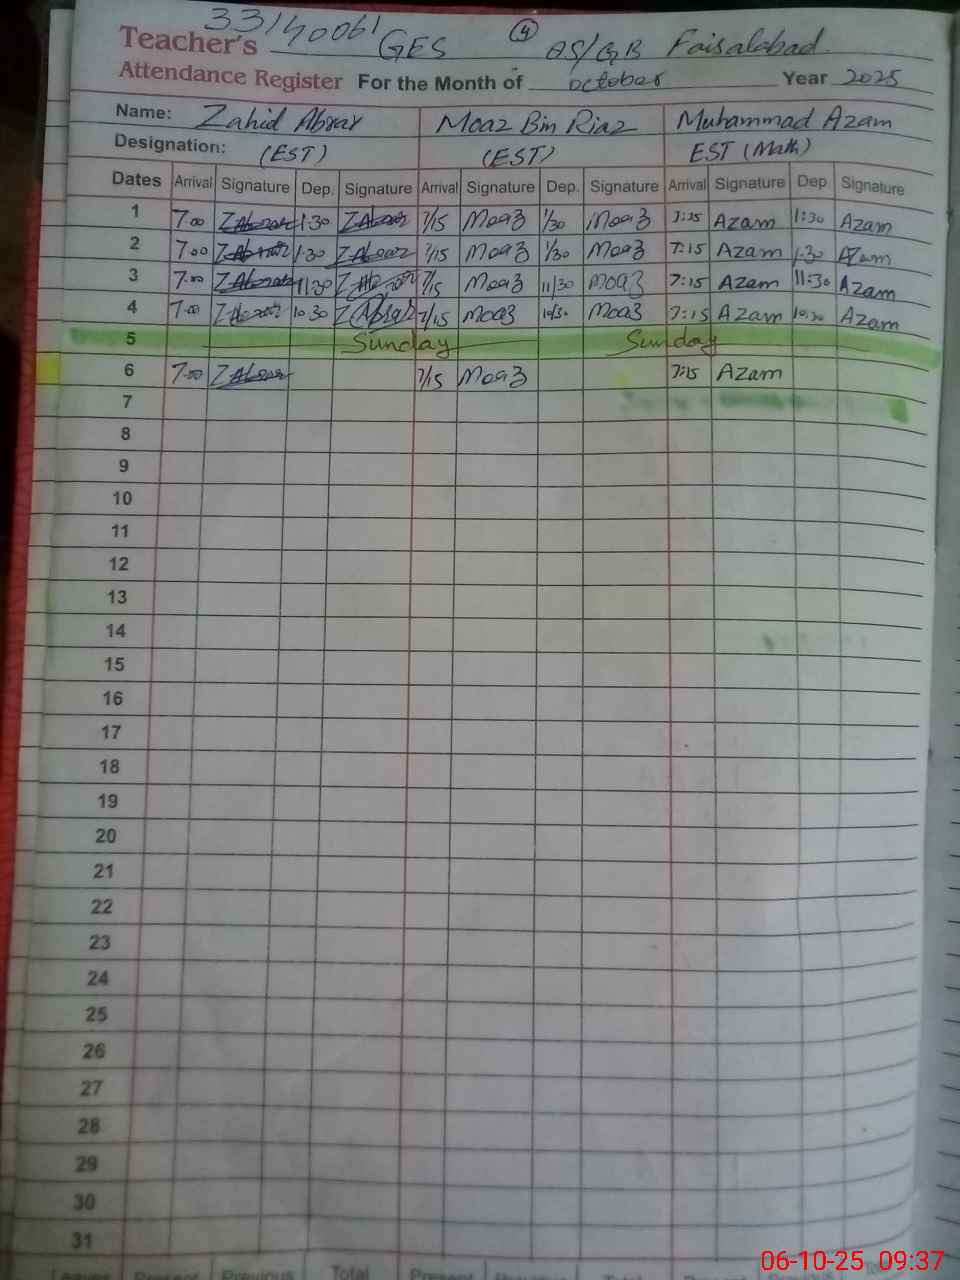 33140061
Teacher's GES (4) AS/GB Faisalabad.
Attendance Register For the Month of october Year 2025
Name: Zahid Absar Moaz Bin Riaz Muhammad Azam
Designation: (EST) (EST) EST (Math)
Dates Arrival Signature Dep. Signature Arrival Signature Dep. Signature Arrival Signature Dep Signature
1 7.00 ZAbsar 1.30 ZAbsar 7/15 Moaz 1/30 Moaz 7:15 Azam 1:30 Azam
2 7.00 ZAbsar 1.30 ZAbsar 7/15 Moaz 1/30 Moaz 7:15 Azam 1:30 Azam
3 7.00 ZAbsar 11.30 ZAbsar 7/15 Moaz 11/30 Moaz 7:15 Azam 11:30 Azam
4 7.00 ZAbsar 10.30 ZAbsar 7/15 Moaz 10/30 Moaz 7:15 Azam 10:30 Azam
5 Sunday Sunday
6 7.00 ZAbsar 7/15 Moaz 7:15 Azam
7
8
9
10
11
12
13
14
15
16
17
18
19
20
21
22
23
24
25
26
27
28
29
30
31
Previous Total Present
06-10-25 09:37